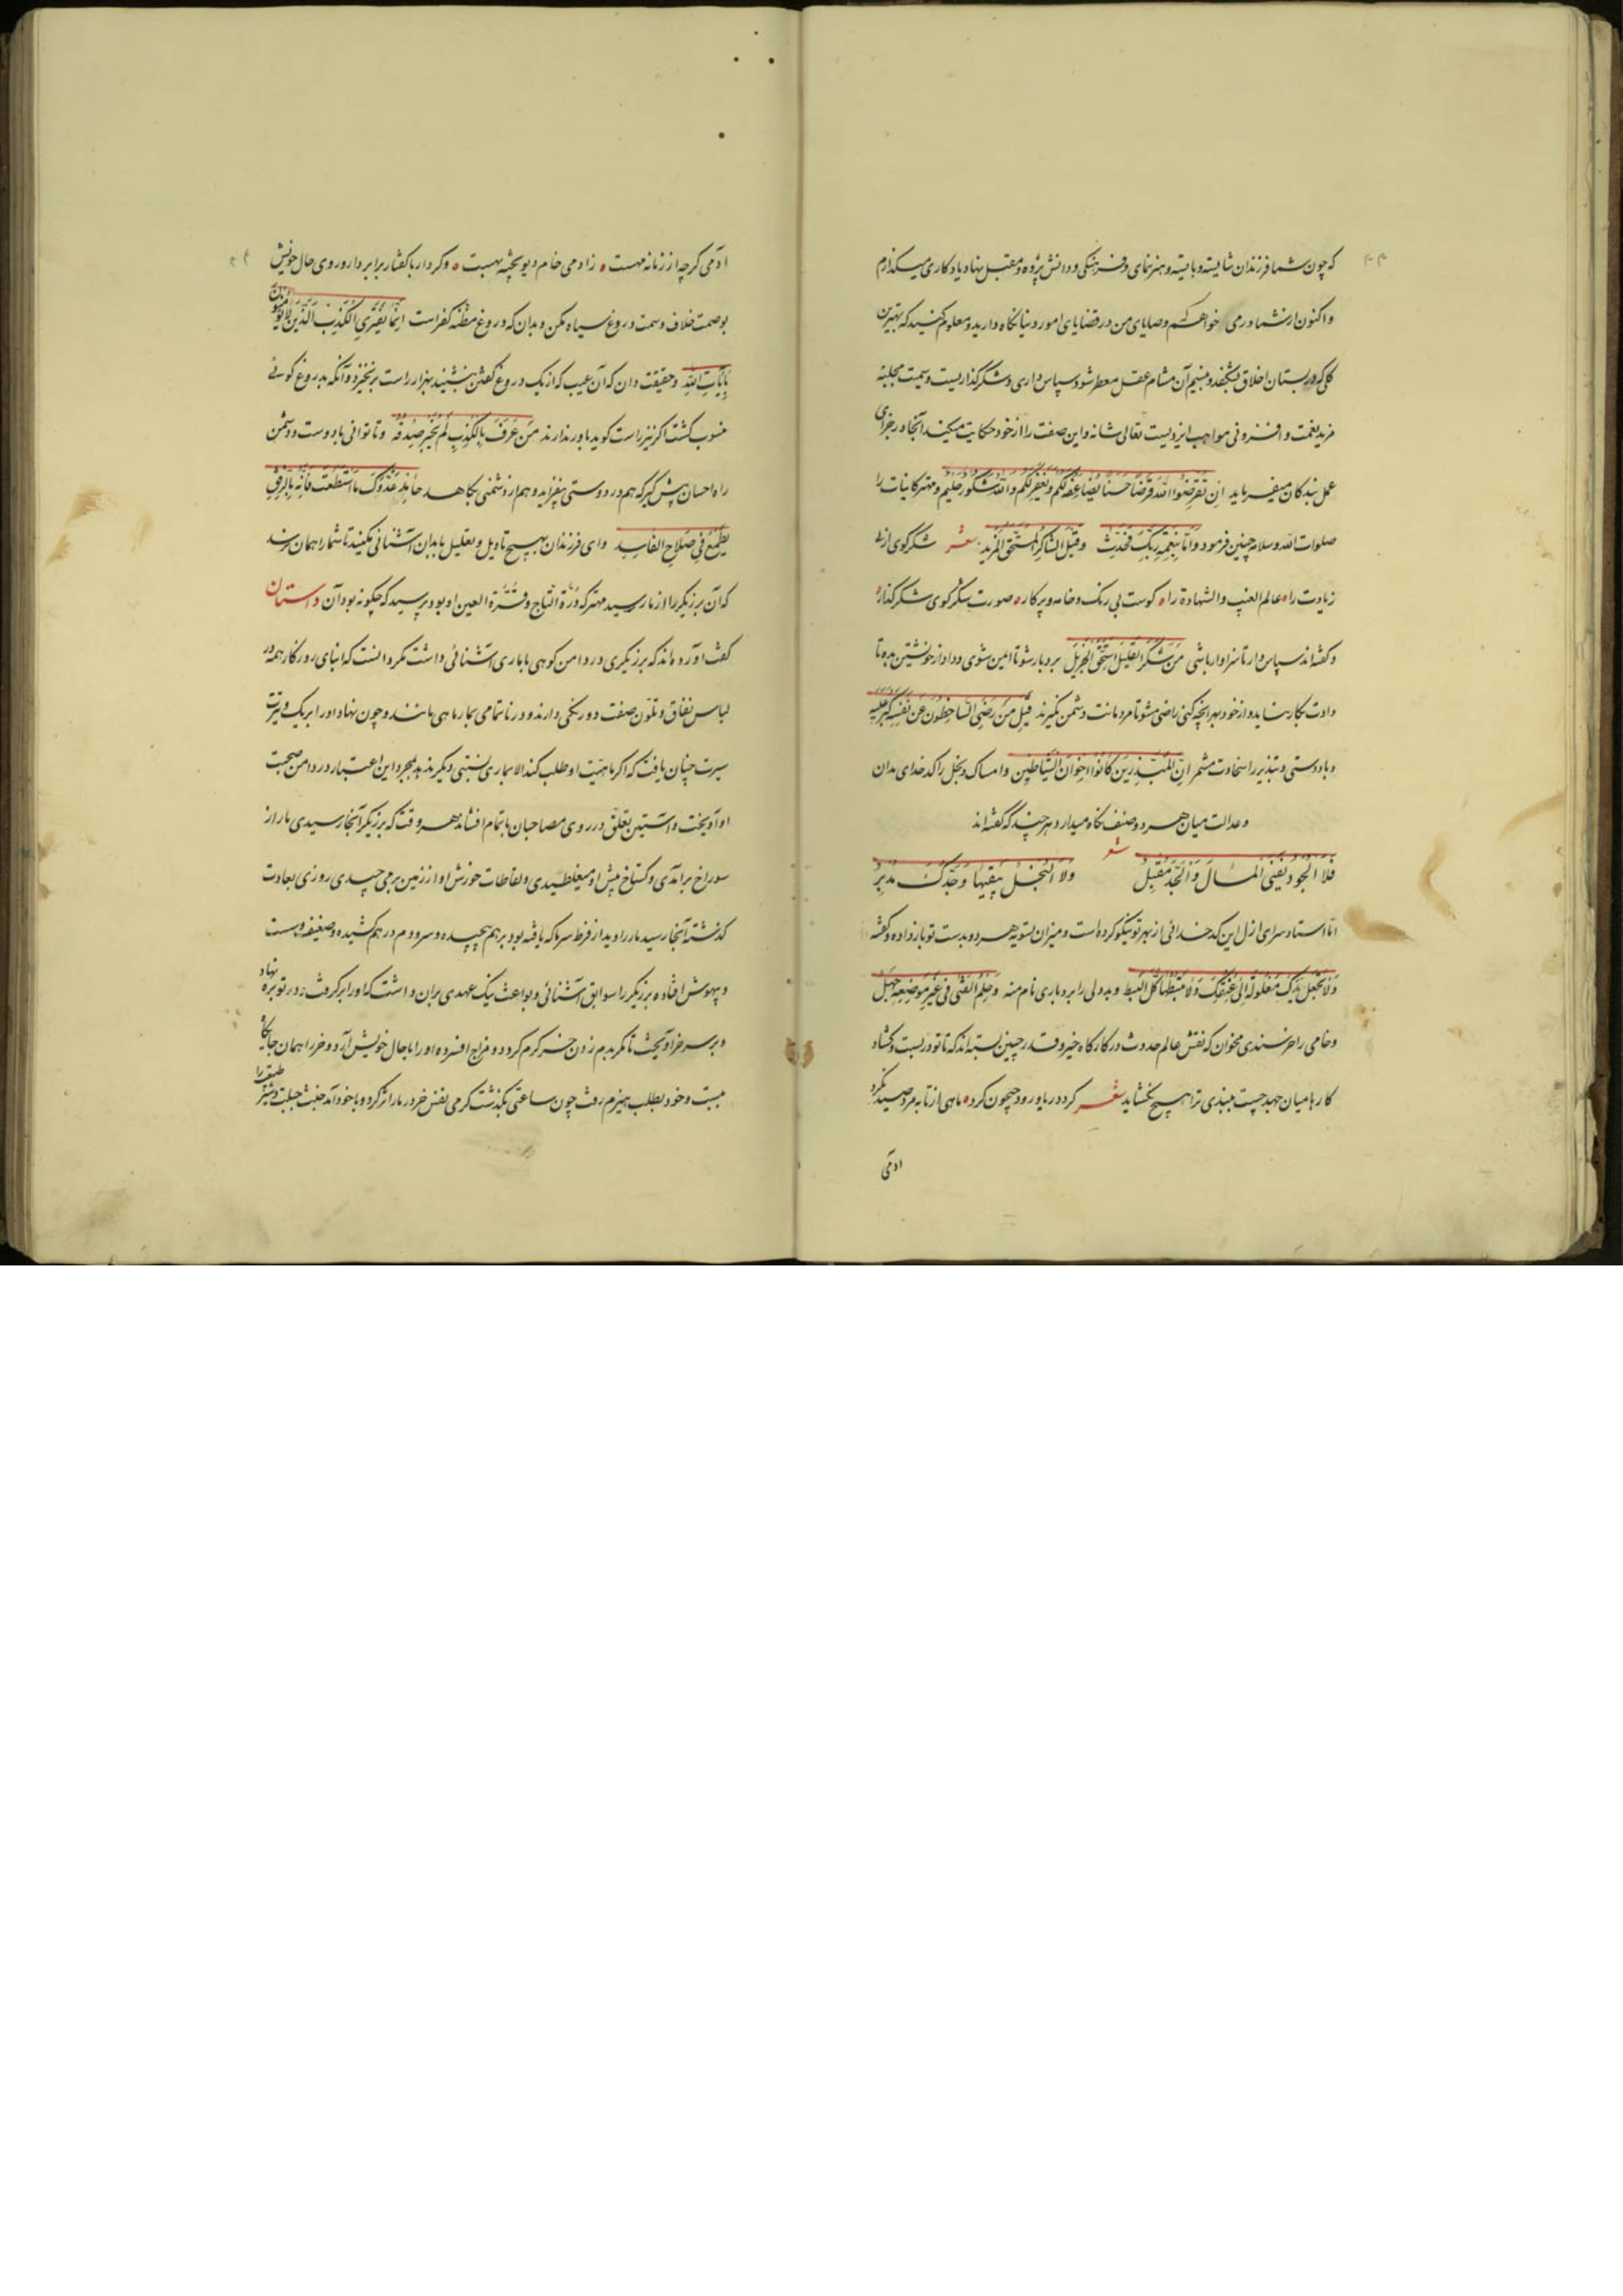 که چون شما فرزندان شایسته و بایسته و هنرنمای و فرهنگی و دانش پژوه و مقبل نهاد یادگار می‌گذارم
و اکنون از شما در می خواهم که وصایای من در قضایای امور دنیا نگاه دارید و معلوم کنید که بهترین
گلی که در بستان اخلاق بشکفد و بنسیم آن مشام عقل معطر شود سپاس داری و شکرگذاریست و سمیت مجلبه
مزید نعمت و افزونی مواهب ایزدیست تعالی شانه و این صفت را از خود حکایت میکند آنجا در جزای
عمل بندگان میفرماید ان تقرضوا الله قرضا حسنا یضاعفه لکم و یغفر لکم و الله شکور حلیم و مهتر کاینات را
صلوات الله و سلامه چنین فرمود و اما بنعمة ربک فحدث و قیل الشاکر یستحق المزید شعر شکر گوی از پی
زیادت را عالم الغیب و الشهادة را گوست بی رنگ و خامه و پرگار صورت شکر گوی شکر گذار
و گفته‌اند سپاس دار تا سزاوار باشی من شکر القلیل استحق الجزیل بردبار شو تا ایمن شوی و داد از خویشتن بده تا
دادت بکار نیاید و از خود بهر آنچه کنی راضی مشو تا مردمانت دشمن نگیرند قیل من رضی الساخطون عن نفسه کثر علیه
و باد دستی و تبذیر را سخاوت مشمر ان المبذرین کانوا اخوان الشیاطین و امساک و بخل را کدخدای مدان
و عدالت میان هر دو صنف نگاه میدار و هر چند که گفته‌اند
شعر
فلا الجود یفنی المال و الجد مقبل ولا البخل یبقیها و جدک مدبر
اما استاد سرای ازل این کدخدائی از بهر تو نیکو کرده است و میزان تسویه هر دو بدست تو باز داده و گفته
ولا تجعل یدک مغلولة الی عنقک ولا تبسطها کل البسط و بددلی را بردباری نام منه و حلم الفتی فی غیر موضعه جهل
و خامی را خرسندی مخوان که نقش عالم حدوث در کارگاه خیر و قدر چنین بسته‌اند که تا تو در بست و گشاد
کارها میان جهد چست نبندی ترا هیچ نگشاید شعر گرد دریا و رود جیحون گرد ماهی از تابه مرد صید نکرد
ادمی
ادمی گرچه از زمانه مهست زادمی خام دیو پخته بهست و کردار با گفتار برابر دار و روی حال خویش
بوصمت خلاف و سمت دروغ سیاه مکن و بدان که دروغ مظنه کفر است انما یفتری الکذب الذین لا یؤمنون
بآیات الله و حقیقت دان که آن عیب که از یک دروغ گفتن بنشیند بهزار راست برنخیزد و آنکه بدروغ گوئی
منسوب گشت اگر نیز راست گوید باور ندارند من عرف بالکذب لم یجز صدقه و تا توانی با دوست و دشمن
راه احسان پیش گیر که هم در دوستی بیفزاید و هم از دشمنی بکاهد جامل عدوک ما استطعت فانه بالرفق
یطمع فی صلاح الفاسد و ای فرزندان بهیچ تاویل و تعلیل با بدان آشنائی نکنید تا شما را همان رسد
که آن برزیگر را از مار رسید مهتر که درة التاج و قرة العین او بود پرسید که چگونه بود آن داستان
گفت آورده‌اند که برزیگری در دامن کوهی با ماری آشنائی داشت مگر دانست که ابنای روزگار همه در
لباس نفاق و تلون صفت دورنگی دارند و در ناتمامی بمار ماهی مانند و چون نهاد او را بر یک وتیرت
سیرت چنان یافت که اگر ماهیت او طلب کنند الا بماری نسبتی دیگر ندهد بمجرد این اعتبار در دامن صحبت
او آویخت و آستین تعلق در روی مصاحبان ناتمام افشاند هر وقت که برزیگر آنجا رسیدی مار از
سوراخ برآمدی و گستاخ پیش او میغلطیدی و لقاطات خورش او از زمین برمی‌چیدی روزی بعادت
گذشته آنجا رسید مار را دید از فرط سرما که یافته بود بر هم پیچیده و سر و دم در هم کشیده و ضعیف و سست
و بیهوش افتاده برزیگر را سوابق آشنائی و بواعث نیک عهدی بران داشت که او را برگرفت و در توبره نهاد
و بر سر خر آویخت تا مگر بدم زدن خر گرم گردد و مزاج افسرده او را با حال خویش آرد و خر را همان جایگاه
ببست و خود بطلب هیزم رفت چون ساعتی بگذشت گرمی نفس خر در مار اثر کرد و با خود آمد خبث جبلت و شر طبیعت را